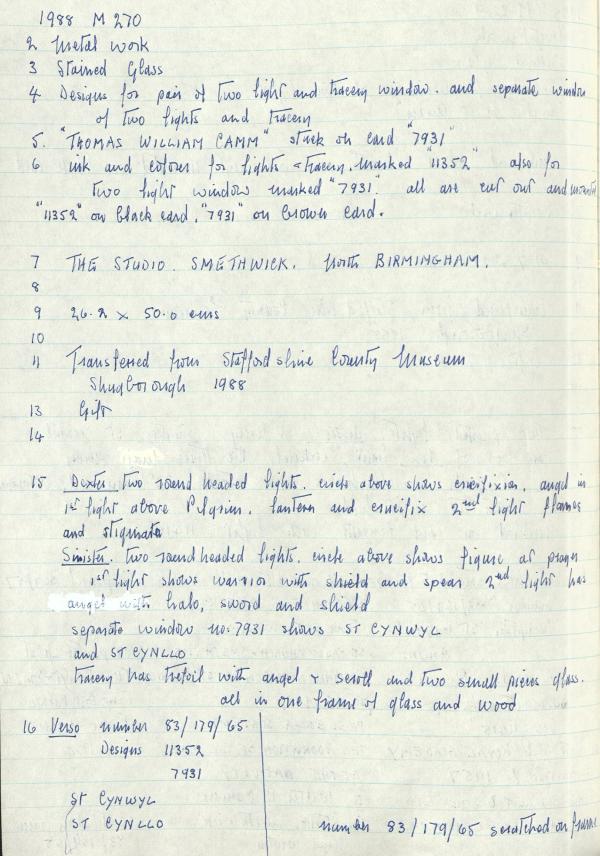 1988 M 270
2 Metal work
3 Stained Glass
4 Designs for pair of two light and tracery window. and separate window
of two lights and tracery
5. "THOMAS WILLIAM CAMM" stuck on card "7931"
6 ink and colour for lights + tracery. marked "11352" also for
two light window marked "7931". all are cut out and mounted
"11352" on black card, "7931" on brown card.
7 THE STUDIO. SMETHWICK. North BIRMINGHAM.
8
9 26.2 x 50.0 cms
10
11 Transferred from Staffordshire County Museum
Shugborough 1988
13 Gift
14
15 Dexter two round headed lights. circle above shows crucifixion. angel in
1st light above Pilgrim. lantern and crucifix 2nd light flames
and stigmata
Sinister. two roundheaded lights. circle above shows figure at prayer
1st light shows warrior with shield and spear 2nd light has
angel with halo, sword and shield
separate window no: 7931 shows ST CYNWYL
and ST CYNLLO
tracery has trefoil with angel + scroll and two small pieces glass.
all in one frame of glass and wood
16 Verso number 83/179/65
Designs 11352
7931
ST CYNWYL
ST CYNLLO
number 83/179/65 scratched on frame